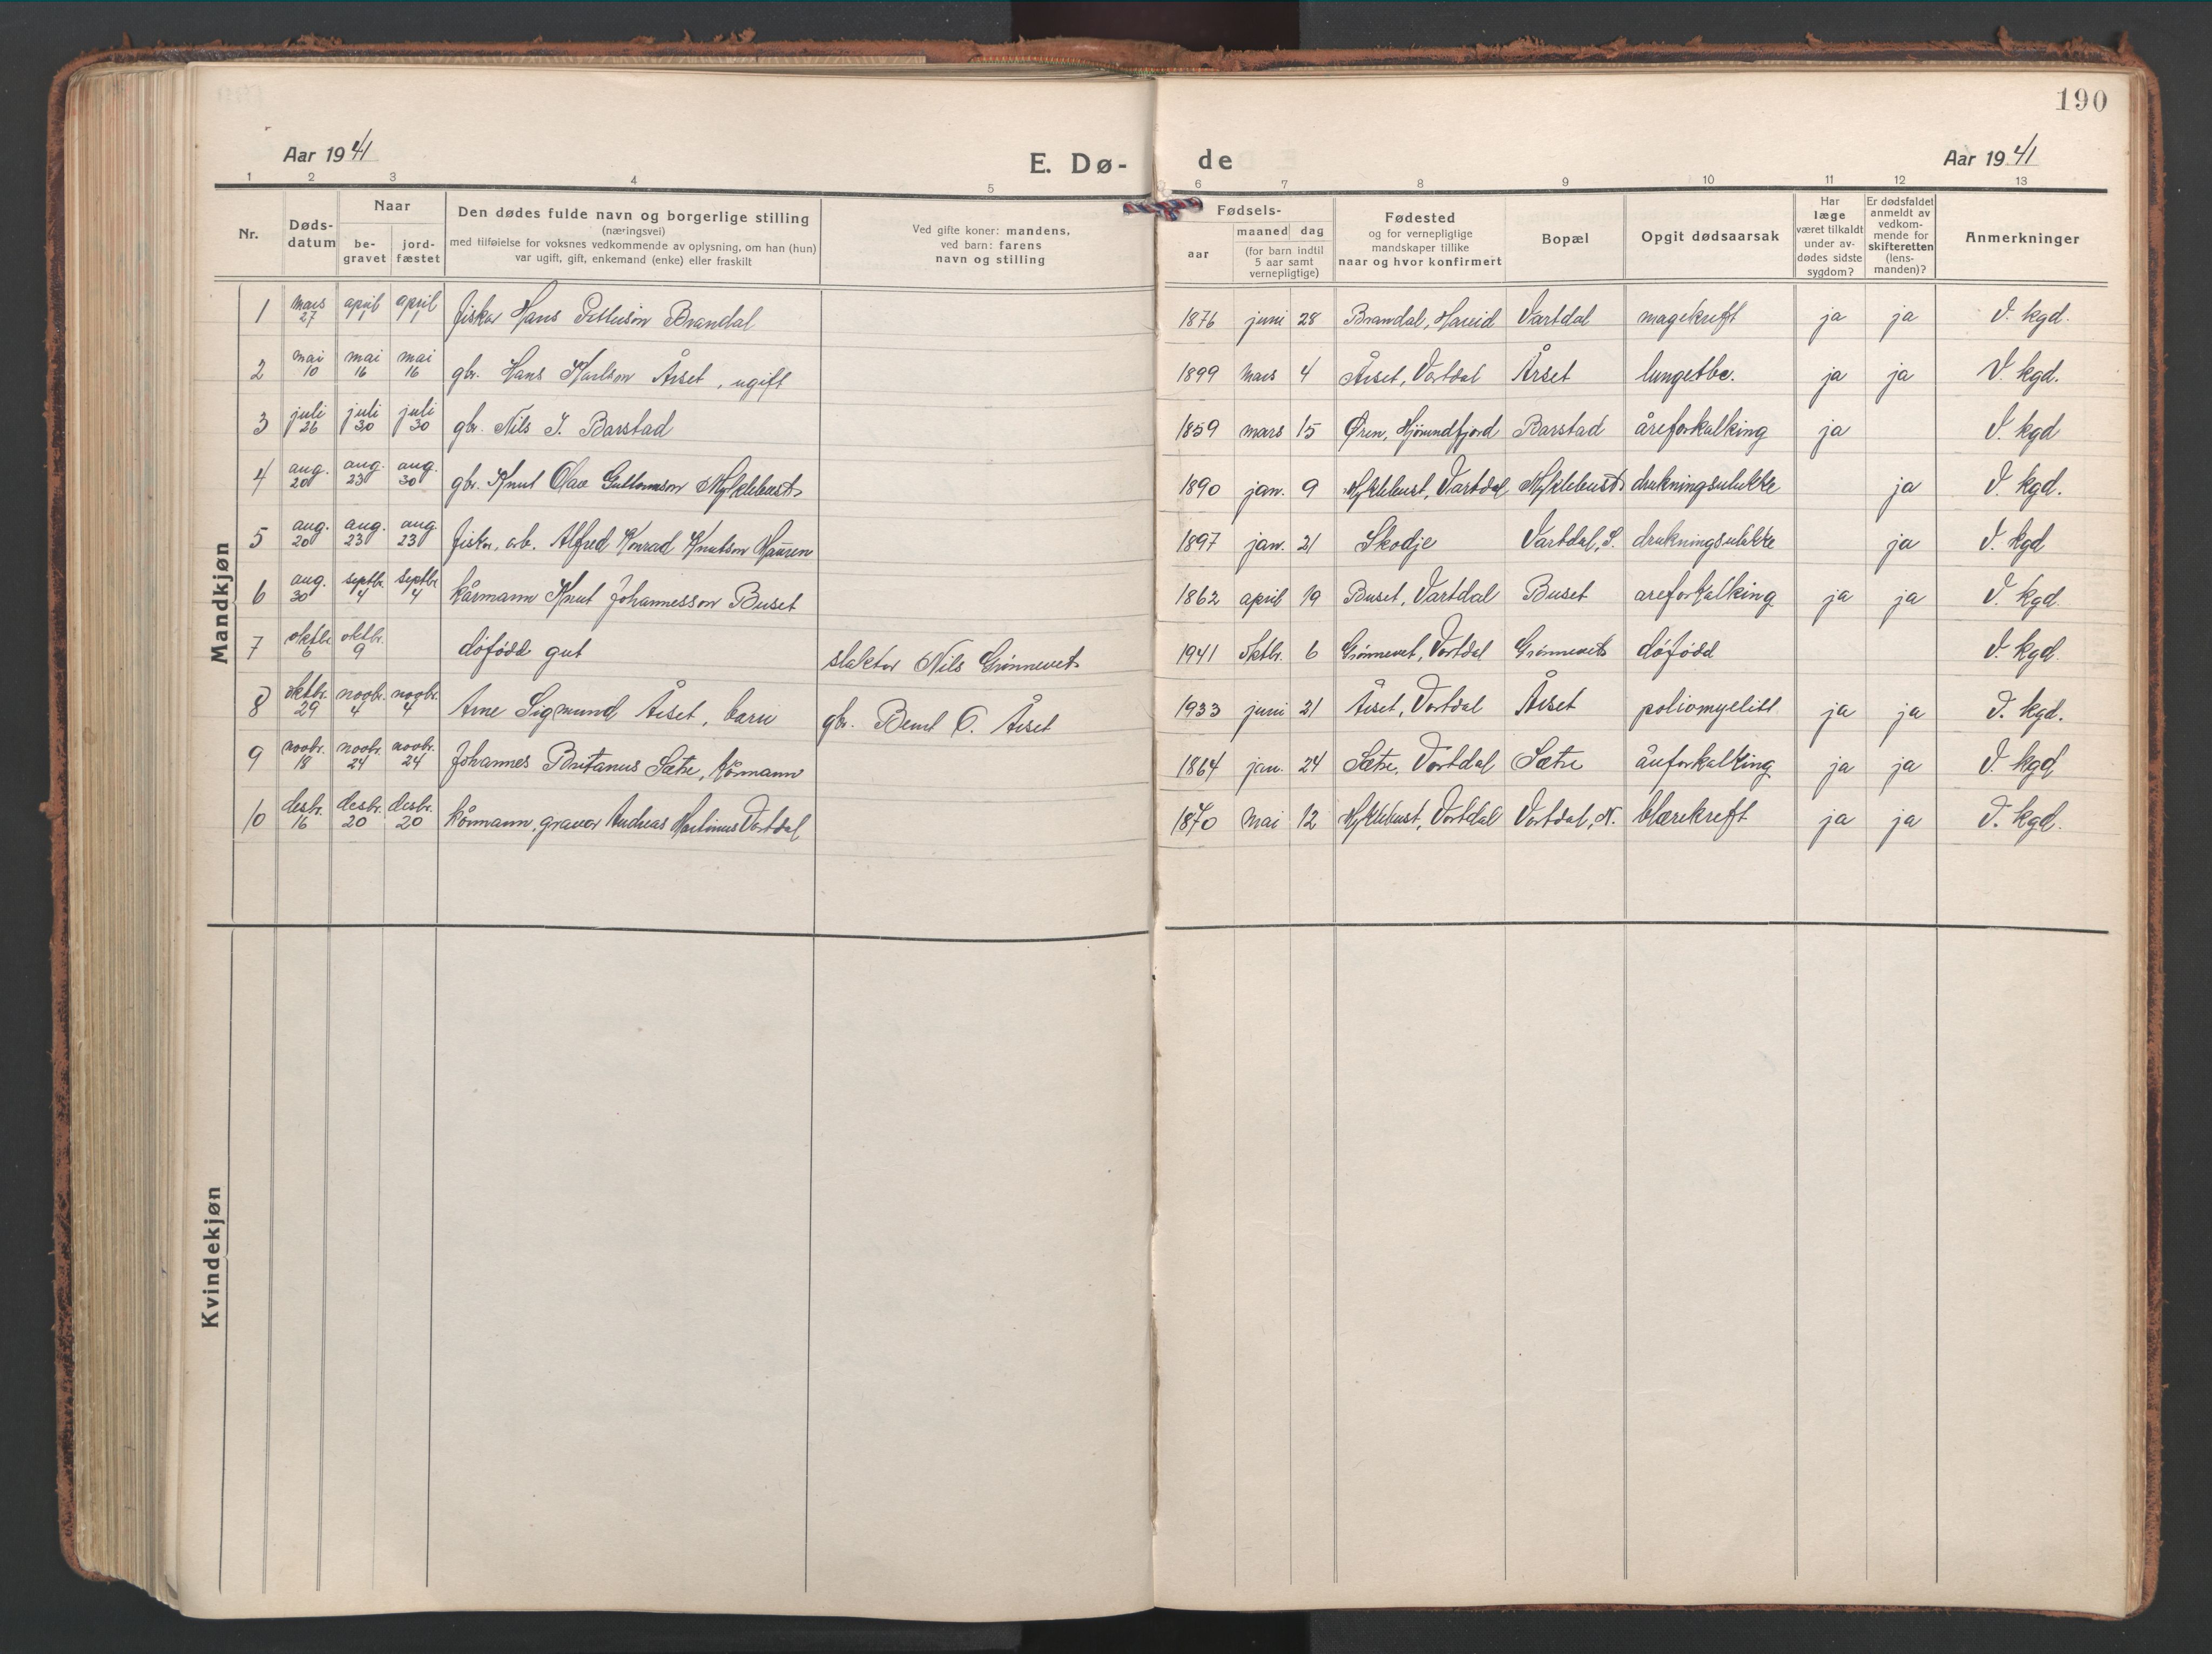 190
Aar 1941
E. Dø-
de
Aar 1941
1 2 3 4 5 6 7 8 9 10 11 12 13
Nr.
Døds-
datum
Naar
be-
gravet
jord-
fæstet
Den dødes fulde navn og borgerlige stilling
(næringsvei)
med tilføielse for voksnes vedkommende av oplysning, om han (hun)
var ugift, gift, enkemand (enke) eller fraskilt
Ved gifte koner: mandens,
ved barn: farens
navn og stilling
Fødsels-
aar
maaned dag
(for barn indtil
5 aar samt
vernepligtige)
Fødested
og for vernepligtige
mandskaper tillike
naar og hvor konfirmert
Bopæl
Opgit dødsaarsak
Har
læge
været tilkaldt
under av-
dødes sidste
sygdom?
Er dødsfaldet
anmeldt av
vedkom-
mende for
skifteretten
(lens-
manden)?
Anmerkninger
Mandkjøn
1 mars 27 april 1 april 1 fiskar Hans Brandal 1876 juni 28 Brandal, Hareid Vartdal magekreft ja ja V. kgd.
2 mai 10 mai 16 mai 16 gbr. Hans Karlson Årset, ugift 1899 mars 4 Årset, Vartdal Årset lungetbc. ja ja V. kgd.
3 juli 26 juli 30 juli 30 gbr. Nils J. Barstad 1859 mars 15 Øren, Hjörundfjord Barstad åreforkalking ja V. kgd
4 aug. 20 aug. 23 aug. 30 gbr. Knut Olav Guttormson Myklebust 1890 jan. 9 Myklebust, Vartdal Myklebust drukningsulukke ja V. kgd.
5 aug. 20 aug. 23 aug. 23 fiskar, arb. Alfred Konrad Knutson Mauren 1897 jan. 21 Skodje Vartdal, S. drukningsulukke ja V. kgd
6 aug. 30 septbr 4 septbr 4 kårmann Knut Johannesson Buset 1862 april 19 Buset, Vartdal Buset åreforkalking ja ja V. kgd.
7 oktbr 6 oktbr. 9 døfødd gut slaktar Nils Grönnevet 1941 oktbr. 6 Grönnevet, Vartdal Grönnevet døfødd V. kgd.
8 oktbr. 29 novbr. 4 novbr. 4 Arne Sigmund Årset, barn gbr. Bernt O. Årset 1933 juni 21 Årset, Vartdal Årset poliomyelitt ja ja V. kgd.
9 novbr. 18 novbr. 24 novbr. 24 Johannes Britanus Sætre, kårmann 1864 jan. 24 Sætre, Vartdal Sætre åreforkalking ja ja V. kgd
10 desbr. 16 desbr. 20 desbr. 20 kårmann, gravar Andreas Martinus Vartdal 1870 mai 12 Myklebust, Vartdal Vartdal, N. blærekreft ja ja V. kgd.
Kvindekjøn